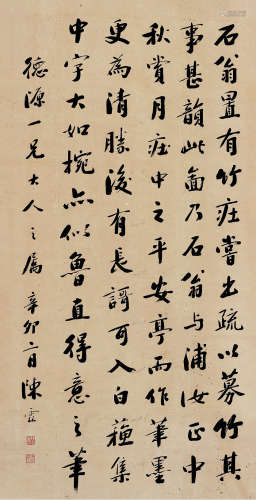 石翁置有竹莊嘗出疏以募竹其
事甚韻此畫乃石翁與浦汝正中
秋賞月莊中之平安亭而作筆墨
更為清勝後有長謌可入白蘓集
中字大如椀亦似魯直得意之筆
德源一兄大人之屬 辛卯二月 陳